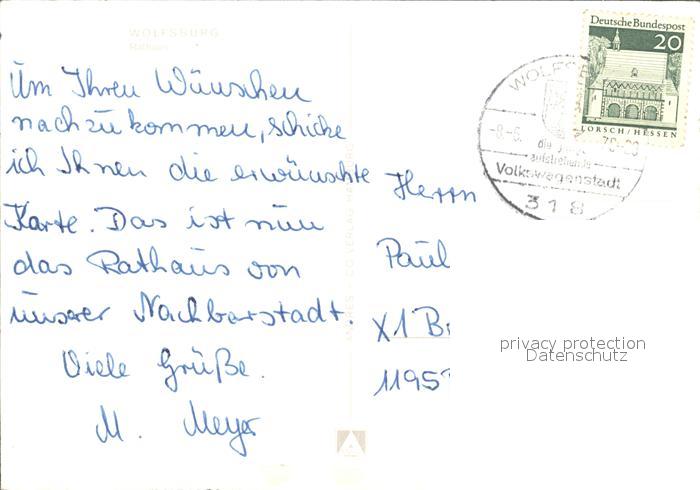 WOLFSBURG
Rathaus
Um Ihren Wünschen
nachzukommen, schicke
ich Ihnen die erwünschte
Karte. Das ist nun
das Rathaus von
unserer Nachbarstadt.
Viele Grüße.
M. Meyer
Herrn
Paul
X1 B
1195
Deutsche Bundespost
20
LORSCH/HESSEN
WOLFSB
-8-6.
die
aufstrebende
Volkswagenstadt
318
privacy protection
Datenschutz